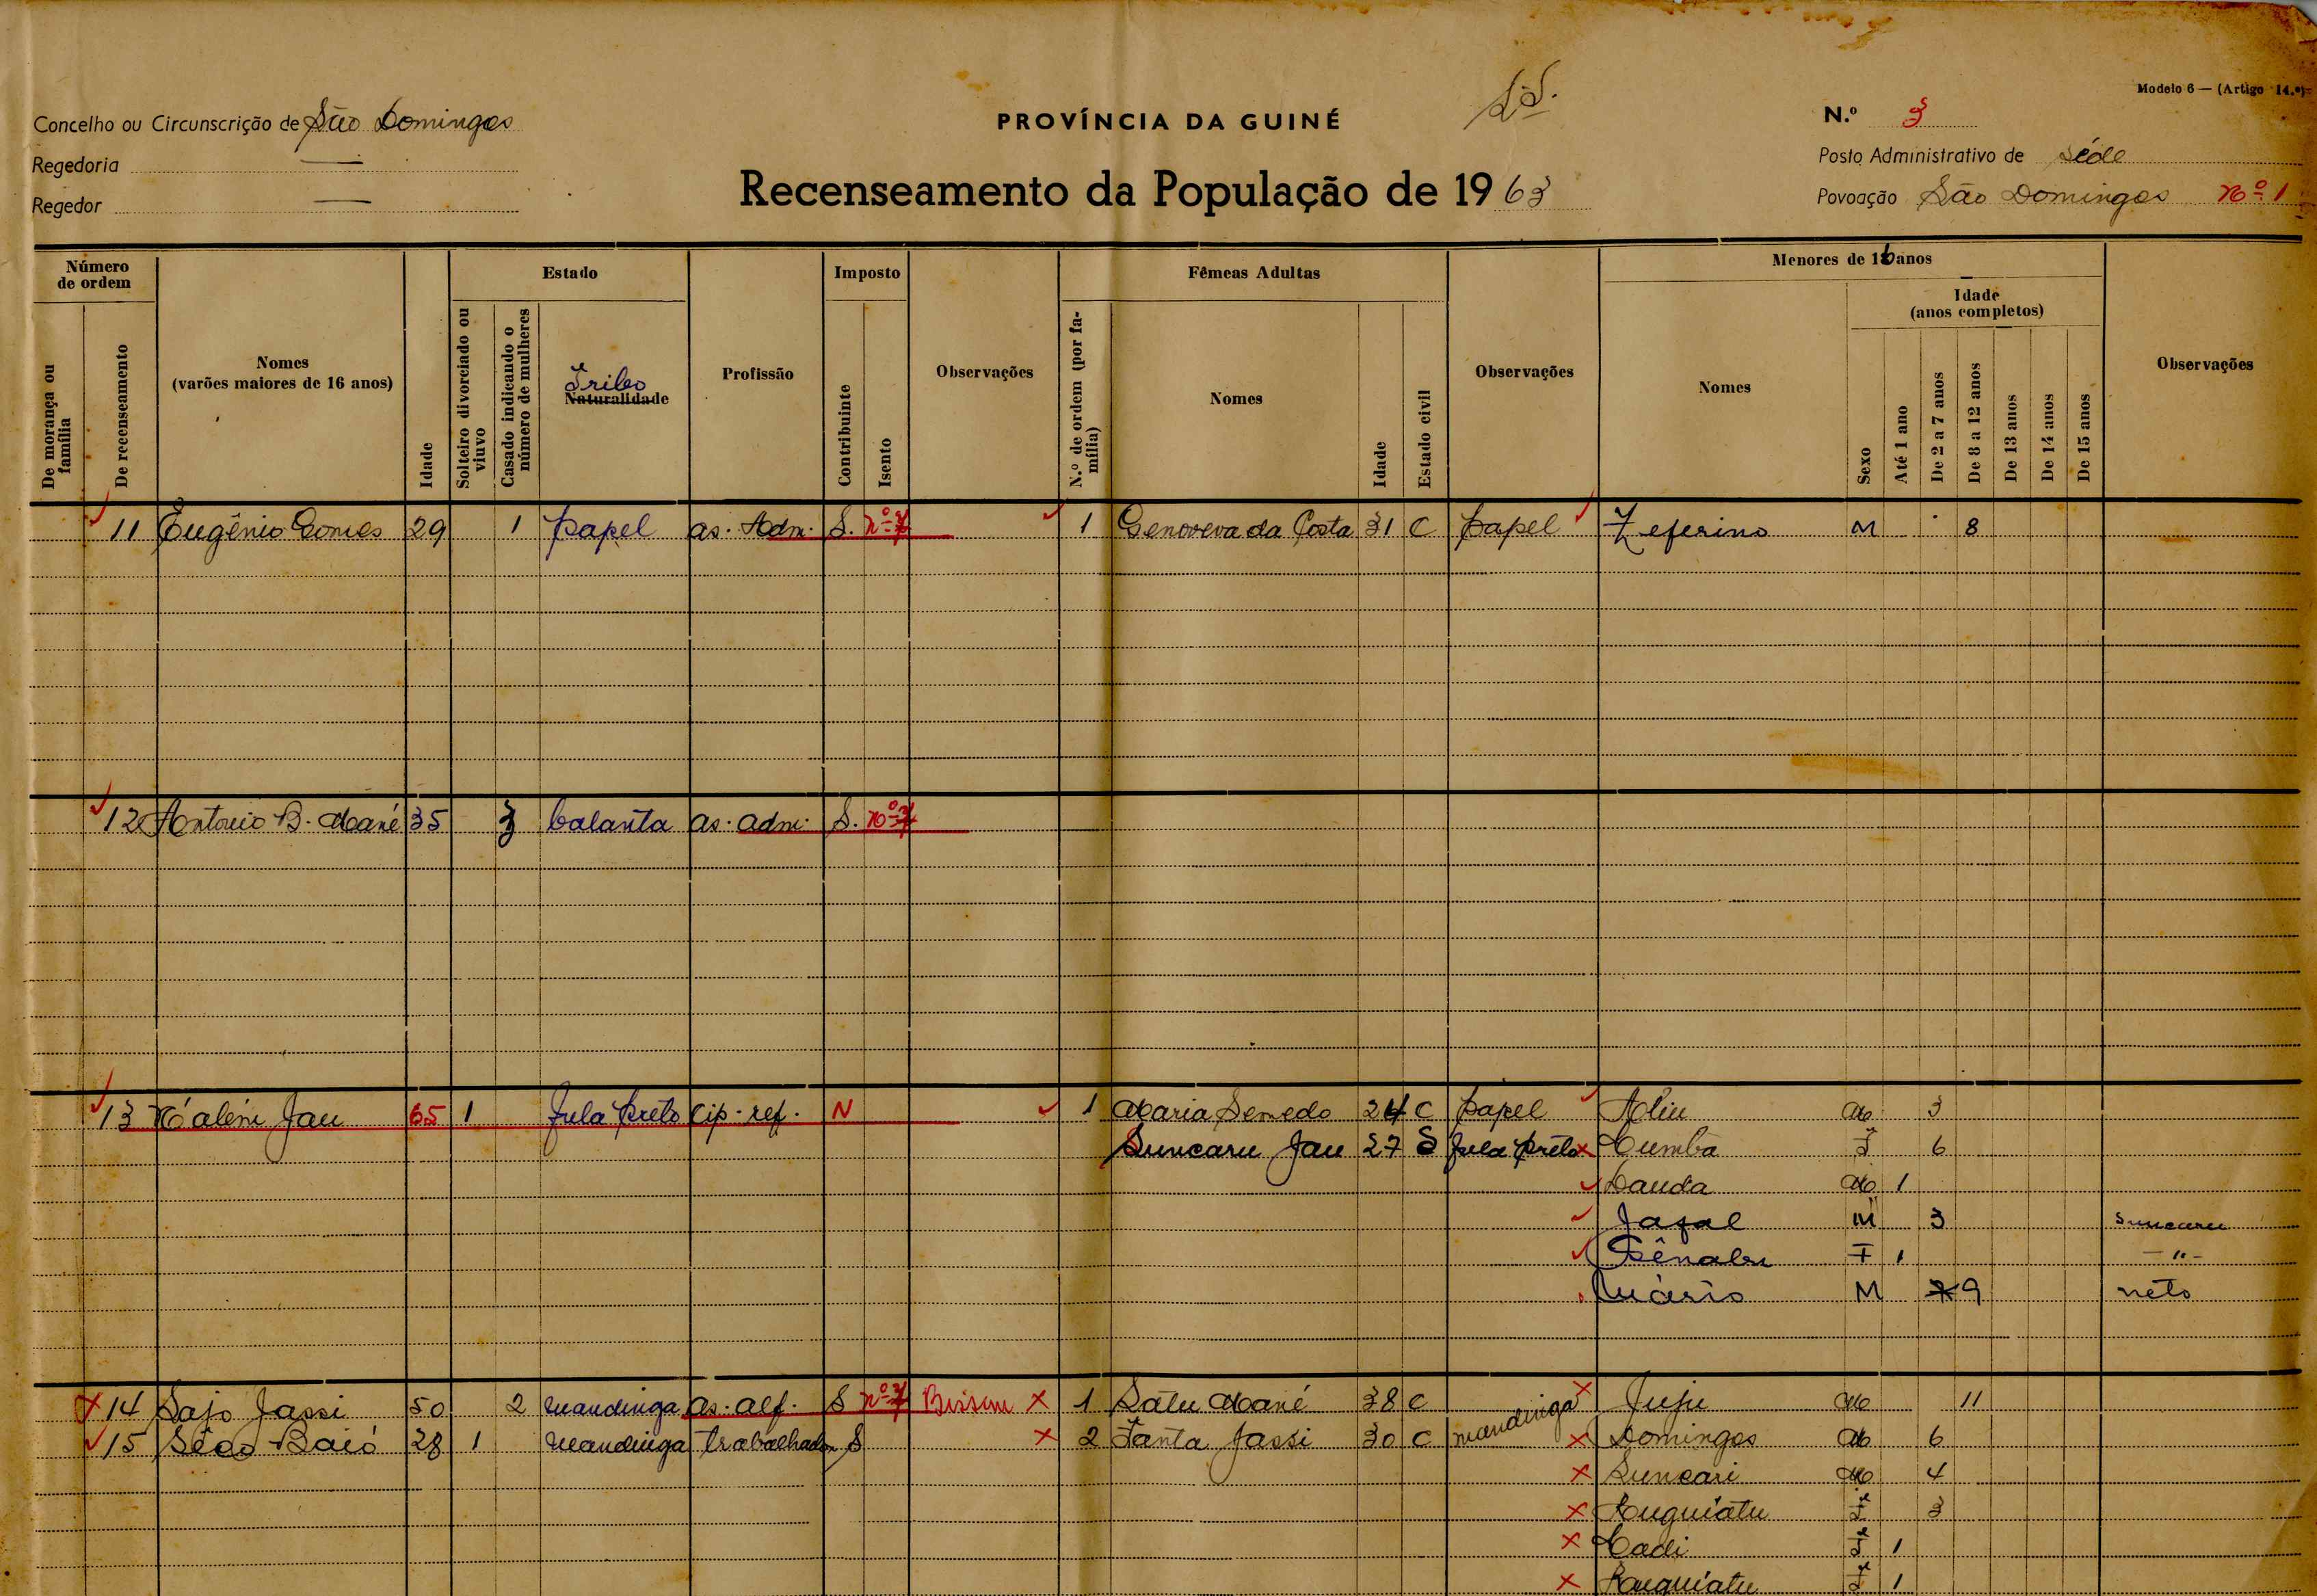 Modelo 6 — (Artigo 14.º)
Concelho ou Circunscrição de São Domingos
PROVÍNCIA DA GUINÉ
N.º 3
Regedoria —
Posto Administrativo de Séde
Regedor —
Recenseamento da População de 1963
Povoação São Domingos Nº 1
Número de ordem
De morança ou família
De recenseamento
Nomes
(varões maiores de 16 anos)
Idade
Estado
Solteiro divorciado ou viuvo
Casado indicando o número de mulheres
Tribo
Naturalidade
Profissão
Imposto
Contribuinte
Isento
Observações
Fêmeas Adultas
N.º de ordem (por família)
Nomes
Idade
Estado civil
Observações
Menores de 16 anos
Nomes
Sexo
Idade
(anos completos)
Até 1 ano
De 2 a 7 anos
De 8 a 12 anos
De 13 anos
De 14 anos
De 15 anos
Observações
11 Eugênio Gomes 29 1 papel as. Adm. S. nº 7 1 Genoveva da Costa 31 C papel Zeferino M 8
12 Antonio B. Mané 35 3 balanta as. adm. S. Nº 7
13 Jau 65 1 fula preto cip. ref. N 1 Maria Semedo 24 C papel Aliu M 3
Suncaru Jau 27 S fula preto Cumba F 6
Dauda M 1
Jafal M 3 Suncaru
Bênabu F 1 - " -
Mário M 9 neto
14 Sajo Jassi 50 2 mandinga as. alf. S nº 7 Bissum 1 Satu Mané 38 C mandinga Juju M 11
15 Sêco Baió 28 1 mandinga trabalhador S 2 Fanta Jassi 30 C Domingos M 6
Suncari M 4
Ruguiatu F 3
Cadi F 1
Ruguiatu F 1